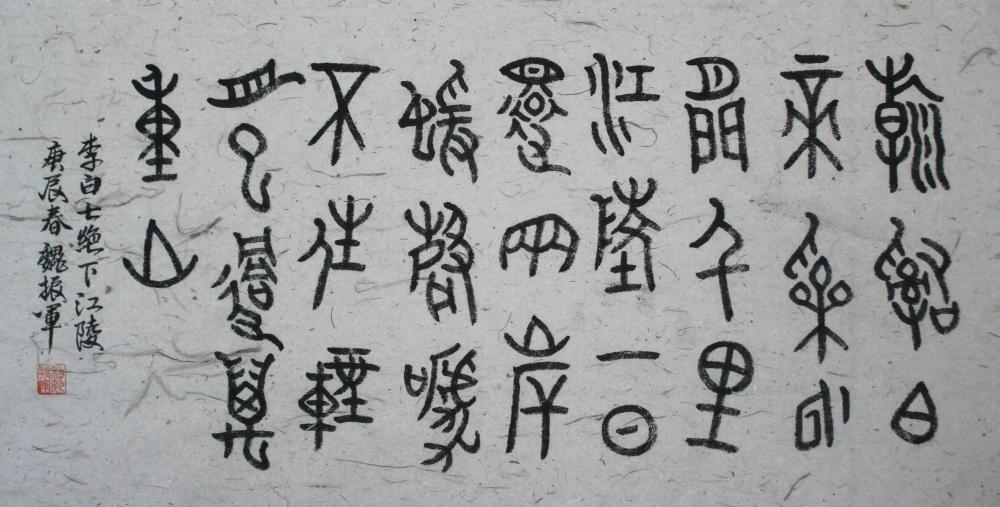 朝辭白
帝彩雲
間千里
江陵一日
還兩岸
猿聲啼
不住輕
舟已過萬
重山
李白七絕下江陵
庚辰春魏振暉